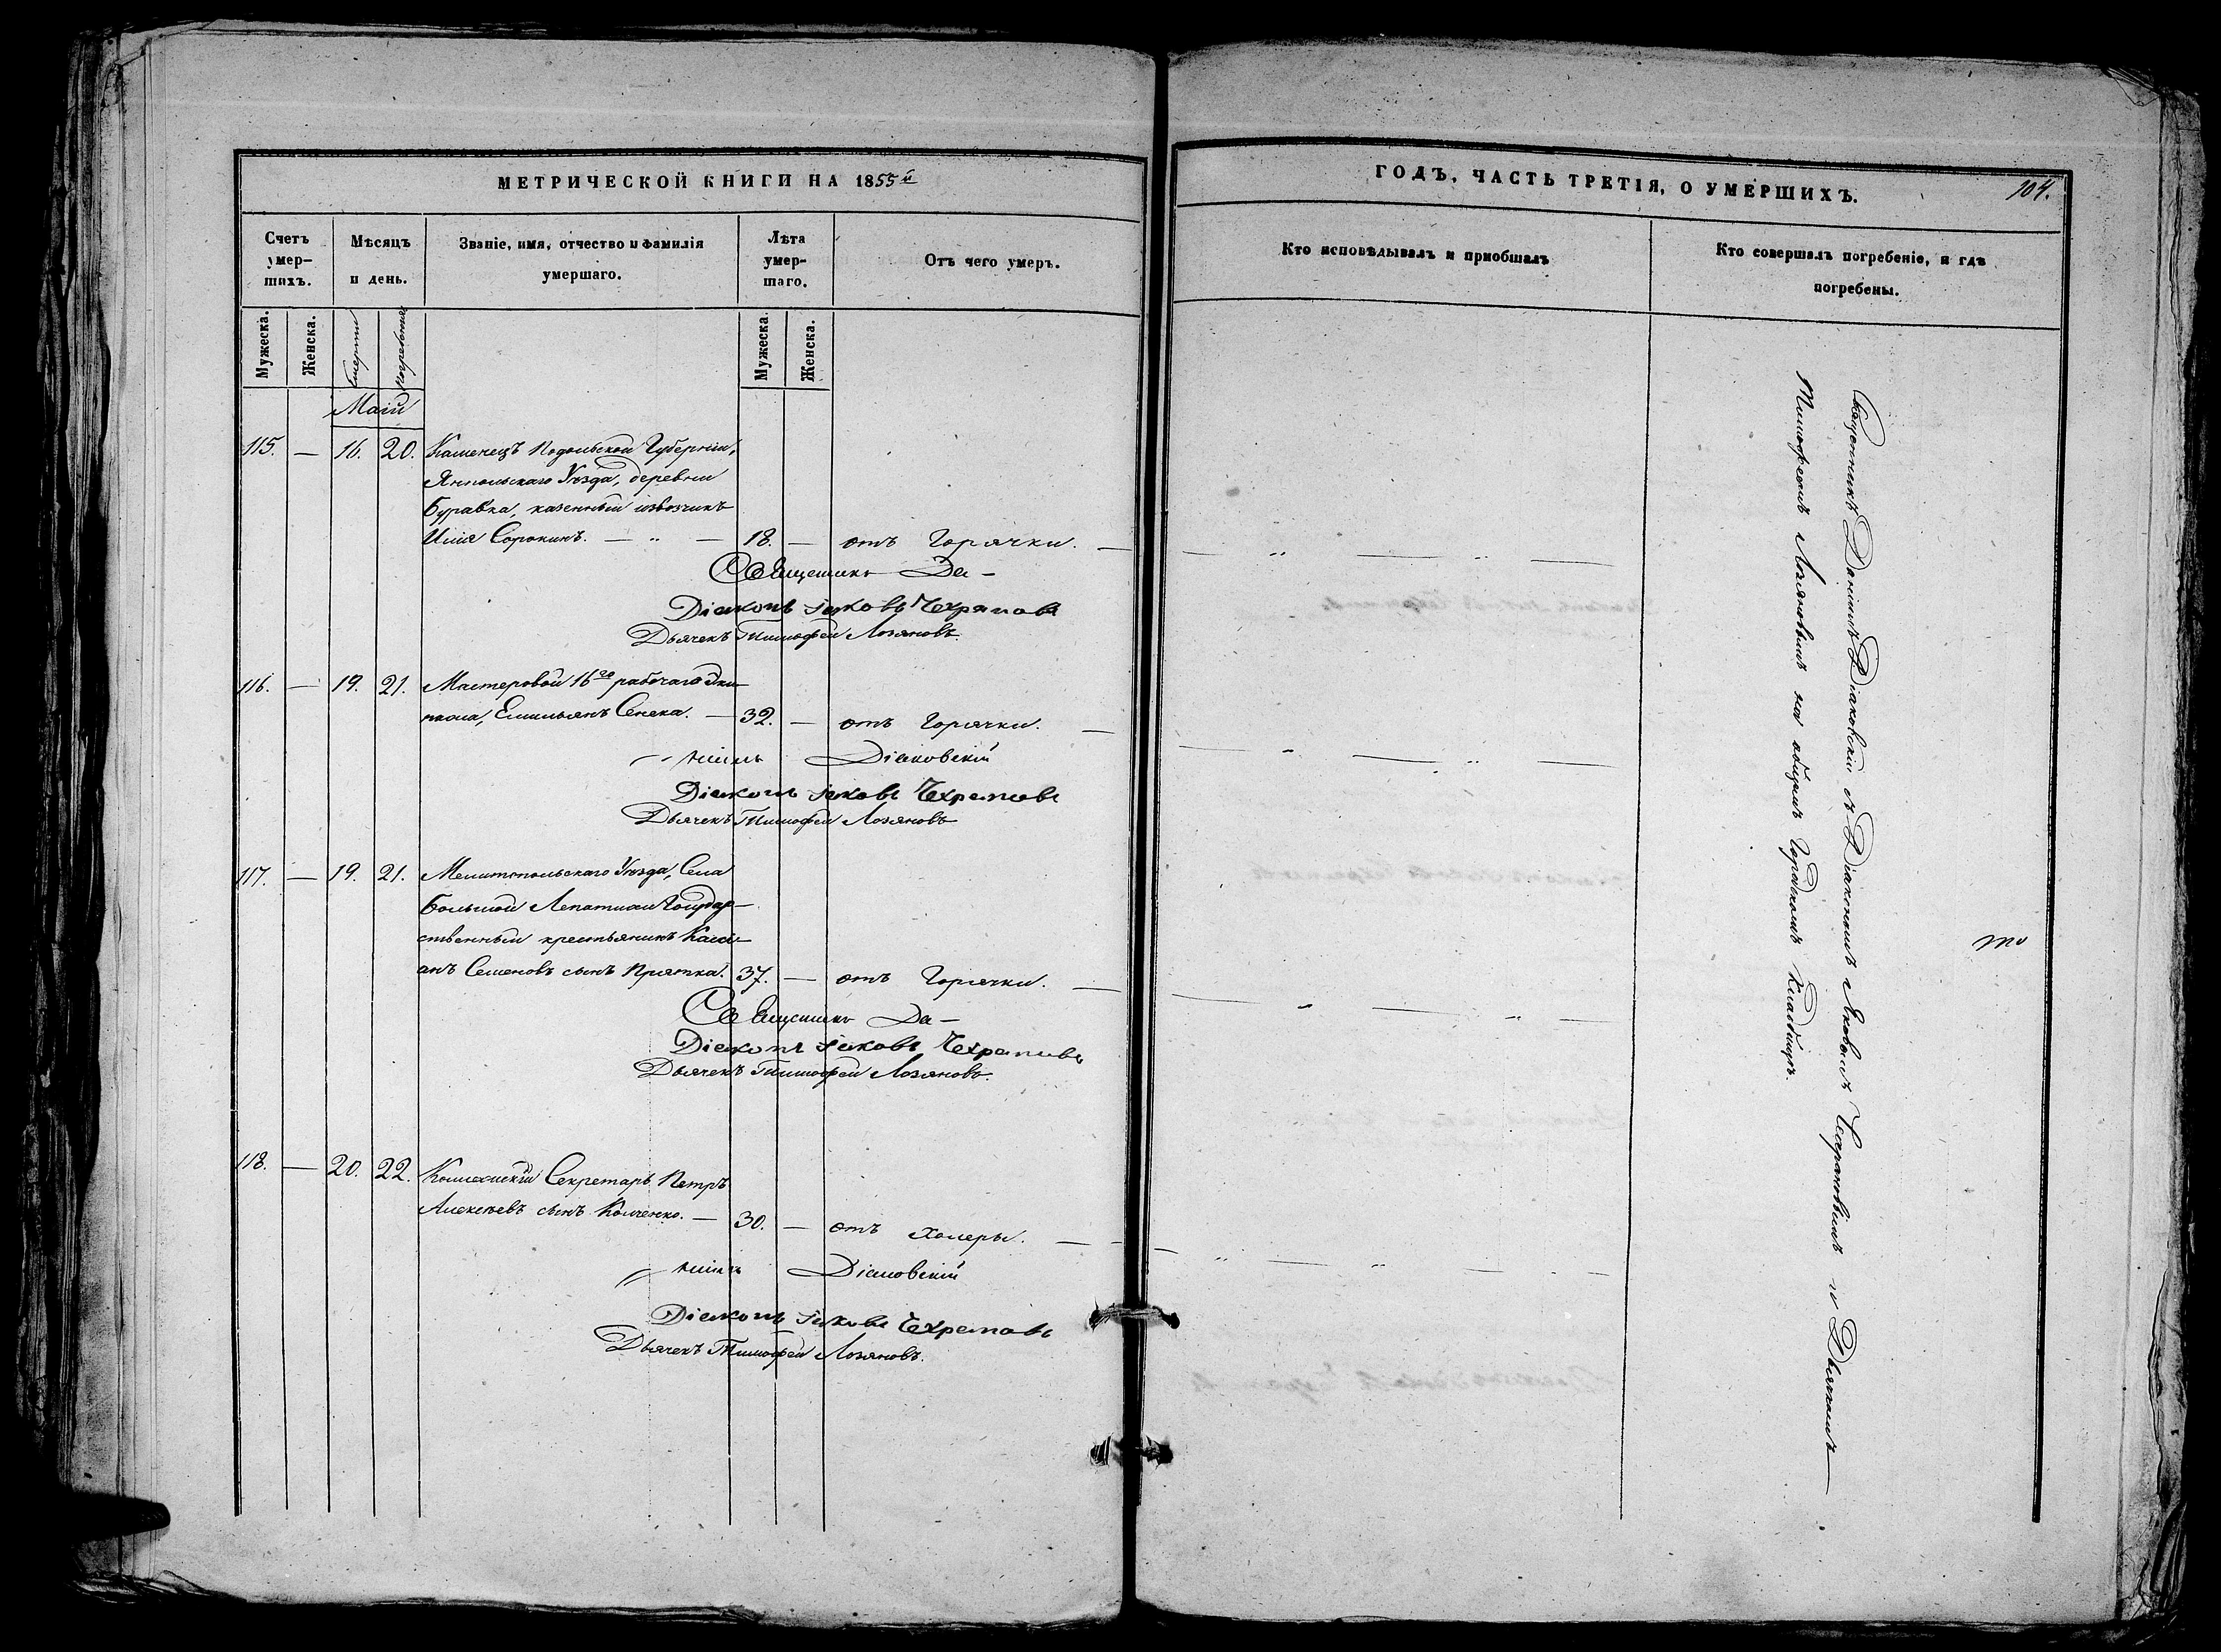 МЕТРИЧЕСКОЙ КНИГИ НА 1855й
Счетъ умер-шихъ.
Мѣсяцъ и день.
Званіе, имя, отчество и фамилія умершаго.
Лѣта умер-шаго.
Отъ чего умеръ.
Мужеска.
Женска.
Смерти
Погребенія
Мужеска.
Женска.
Маій
115. — 16. 20. Каменецъ Подольской Губерніи,
Ямпольскаго Уѣзда, деревни
Буравка, казенный извозчикъ
Илія Сорокинъ. — „ — 18. — отъ Горячки. —
Священникъ Да-
Діаконъ Іаковъ Чехрановъ
Дьячекъ Тимофей Лозановъ.
116. — 19. 21. Мастеровой 16го рабочаго Эки
пажа, Емильянъ Сенека. — 32. — отъ Горячки. —
ніилъ Діаковскій
Діаконъ Іаковъ Чехрановъ
Дьячекъ Тимофей Лозановъ
117. — 19. 21. Мелитопольскаго Уѣзда, Села
Большой Лепатихи Государ-
ственный крестьянинъ Касі-
анъ Семеновъ сынъ Прятка. 37. — отъ Горячки. —
Священникъ Да-
Діаконъ Іаковъ Чехрановъ
Дьячекъ Тимофей Лозановъ.
118. — 20. 22. Коллежскій Секретарь Петръ
Алексѣевъ сынъ Колченко. — 30. — отъ холеры. —
ніилъ Діаковскій
Діаконъ Іаковъ Чехрановъ
Дьячекъ Тимофей Лозановъ.
ГОДЪ, ЧАСТЬ ТРЕТІЯ, О УМЕРШИХЪ.
104.
Кто исповѣдывалъ и пріобщалъ
Кто совершалъ погребеніе, и гдѣ
погребены.
Священникъ Даніилъ Діаковскій съ Діакономъ Яковомъ Чехрановымъ и Дьячкомъ
Тимофеемъ Лозановымъ на общемъ Городскомъ Кладбищѣ.